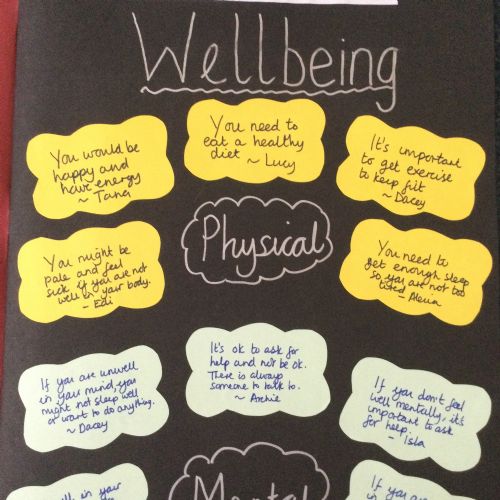 Wellbeing
You would be
happy and
have energy
~ Tana
You need to
eat a healthy
diet ~ Lucy
It's important
to get exercise
to keep fit
~ Dacey
Physical
You might be
pale and feel
sick if you are not
well in your body.
- Edi
You need to
get enough sleep
so you are not too
tired - Alexia
If you are unwell
in your mind you
might not sleep well
or want to do anything.
~ Dacey
It's ok to ask for
help and not be ok.
There is always
someone to talk to.
~ Archie
If you don't feel
well mentally, it's
important to ask
for help.
- Isla
Mental
in your
If you are